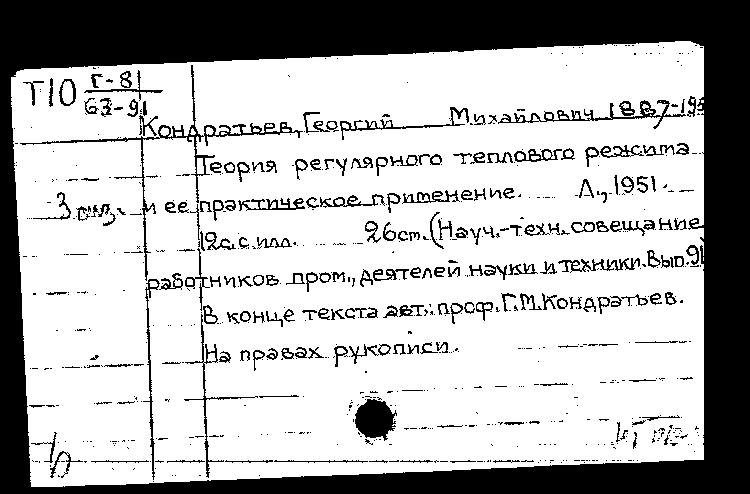 Т10 Г-81
63-91
Кондратьев, Георгий Михайлович 1887-195
Теория регулярного теплового режима
3 экз. и ее практическое применение. Л., 1951.
12с. с илл. 26 см. (Науч.-техн. совещание
работников пром., деятелей науки и техники. Вып. 91)
В конце текста авт.: проф. Г.М. Кондратьев.
На правах рукописи.